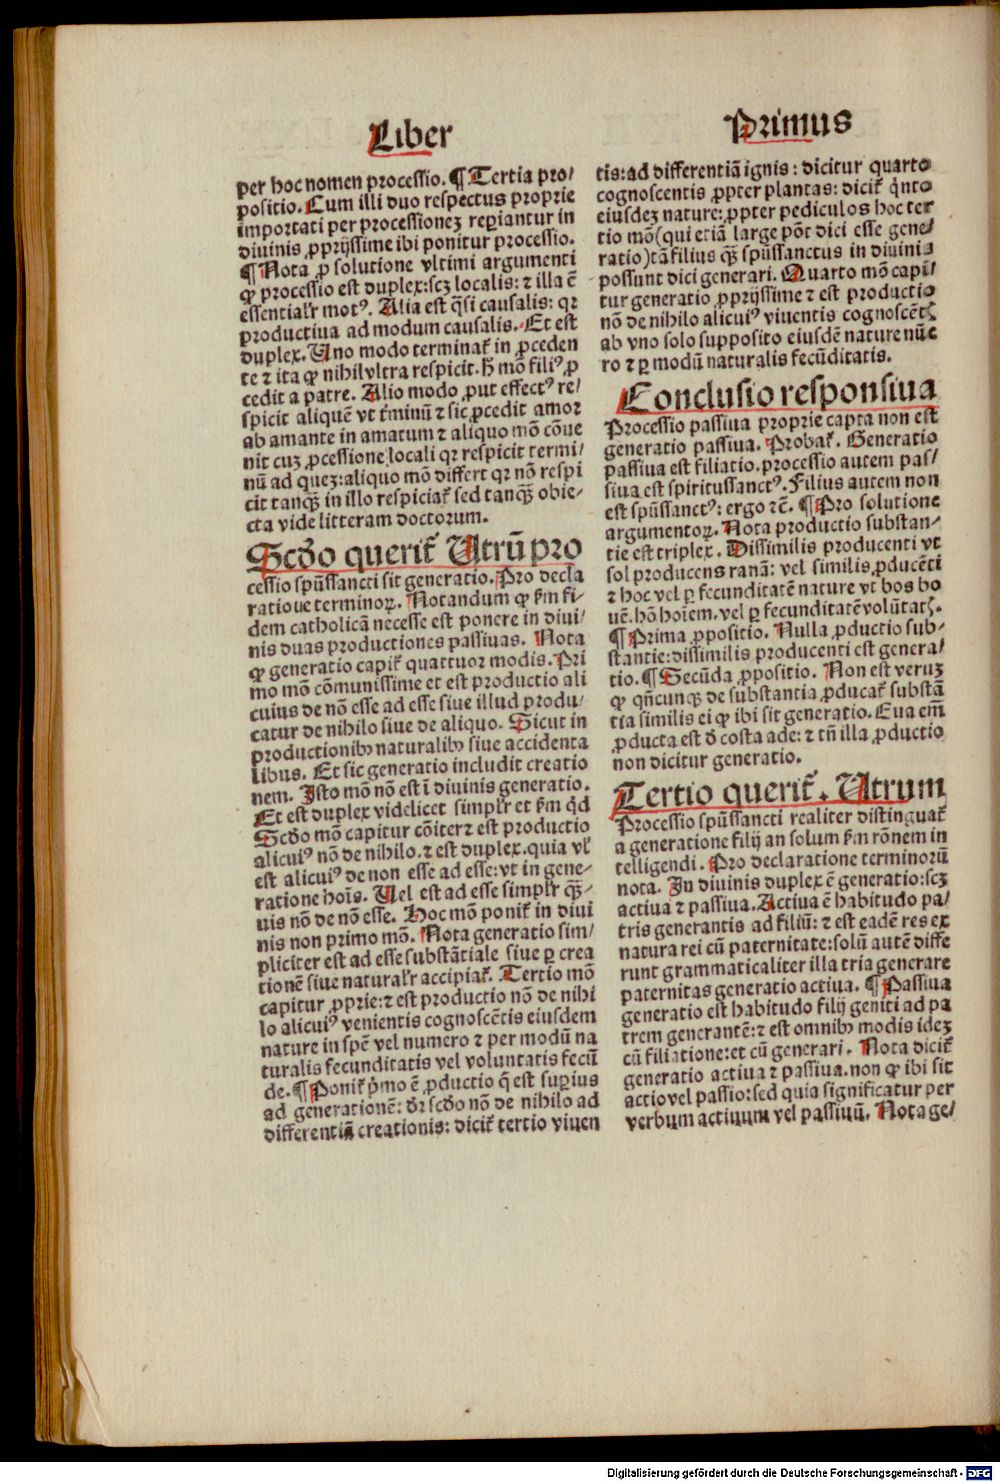 Liber
Primus
per hoc nomen processio. ¶ Tertia pro/
positio. Cum illi duo respectus proprie
importati per processionez reꝑiantur in
diuinis ꝓprijssime ibi ponitur processio.
¶ Nota ꝓ solutione vltimi argumenti
ꝙ processio est duplex: scꝫ localis: ⁊ illa ē
essential'r motꝰ. Alia est q̄si causalis: qꝛ
productiua ad modum causalis. Et est
duplex. Uno modo terminat̄ in ꝓceden
te ⁊ ita ꝙ nihil vltra respicit. h̄ mō filiꝰ ꝓ
cedit a patre. Alio modo ꝓut effectꝰ re/
spicit aliquē vt t̄minū ⁊ sic ꝓcedit amor
ab amante in amatum ⁊ aliquo mō cōue
nit cuꝫ ꝓcessione locali qꝛ respicit termi/
nū ad quez: aliquo mō differt qꝛ nō respi
cit tanqꝫ̄ in illo respiciat̄ sed tanqꝫ̄ obie/
cta vide litteram doctorum.
Scd̄o querit̄ Utrū pro
cessio spūssancti sit generatio. Pro decla
ratioue terminoꝝ. Notandum ꝙ ẜm fi/
dem catholicā necesse est ponere in diui/
nis duas productiones passiuas. Nota
ꝙ generatio capit̄ quattuor modis. Pri
mo mō cōmunissime et est productio ali
cuius de nō esse ad esse siue illud produ/
catur de nihilo siue de aliquo. Sicut in
productionibꝫ naturalibꝫ siue accidenta
libus. Et sic generatio includit creatio
nem. Isto mō nō est ī diuinis generatio.
Et est duplex videlicet simpl'r et ẜm qd̄
Scd̄o mō capitur cōiter ⁊ est productio
alicuiꝰ nō de nihilo. ⁊ est duplex. quia vl'
est alicuiꝰ de non esse ad esse: vt in gene/
ratione hoīs. Uel est ad esse simpl'r qꝫ̄/
uis nō de nō esse. Hoc mō ponit̄ in diui
nis non primo mō. Nota generatio sim/
pliciter est ad esse substātiale siue ꝑ crea
tionē siue natural'r accipiat̄. Tertio mō
capitur ꝓprie: ⁊ est productio nō de nihi
lo alicuiꝰ venientis cognoscētis eiusdem
nature in spē vel numero ⁊ per modū na
turalis fecunditatis vel voluntatis fecū
de. ¶ Ponit̄ p̄mo ē ꝓductio q̄ est suꝑius
ad generationē: d̄r scd̄o nō de nihilo ad
differentiā creationis: dicit̄ tertio viuen
tis: ad differentiā ignis: dicitur quarto
cognoscentis ꝓpter plantas: dicit̄ q̄nto
eiusdeꝫ nature: ꝓpter pediculos hoc ter
tio mō (qui etiā large pōt dici esse gene/
ratio) tā filius qꝫ̄ spūssanctus in diuini⸗
possunt dici generari. Quarto mō capi/
tur generatio ꝓprijssime ⁊ est productio
nō de nihilo alicuiꝰ viuentis cognoscētꝭ
ab vno solo supposito eiusdē nature nūe
ro ⁊ ꝑ modū naturalis fecūditatis.
Conclusio responsiua
Processio passiua proprie capta non est
generatio passiua. Probat̄. Generatio
passiua est filiatio. processio autem pas/
siua est spiritussanctꝰ. Filius autem non
est spūssanctꝰ: ergo ⁊c̄. ¶ Pro solutione
argumentoꝝ. Nota productio substan/
tie est triplex. Dissimilis producenti vt
sol producens ranā: vel similis ꝓducēti
⁊ hoc vel ꝑ fecunditatē nature vt bos bo
uē. hō hoīem. vel ꝑ fecunditatē volūtatꝭ.
¶ Prima ꝓpositio. Nulla ꝓductio sub/
stantie: dissimilis producenti est genera/
tio. ¶ Secūda ꝓpositio. Non est veruꝫ
ꝙ qn̄cunqꝫ de substantia ꝓducat̄ substā
tia similis ei ꝙ ibi sit generatio. Eua em̄
ꝓducta est d̄ costa ade: ⁊ tn̄ illa ꝓductio
non dicitur generatio.
Tertio querit̄. Utrum
Processio spūssancti realiter distinguat̄
a generatione filij an solum ẜm rōnem in
telligendi. Pro declaratione terminorū
nota. In diuinis duplex ē generatio: scꝫ
actiua ⁊ passiua. Actiua ē habitudo pa/
tris generantis ad filiū: ⁊ est eadē res ex
natura rei cū paternitate: solū autē diffe
runt grammaticaliter illa tria generare
paternitas generatio actiua. ¶ Passiua
generatio est habitudo filij geniti ad pa
trem generantē: ⁊ est omnibꝫ modis ideꝫ
cū filiatione: et cū generari. Nota dicit̄
generatio actiua ⁊ passiua. non ꝙ ibi sit
actio vel passio: sed quia significatur per
verbum actiuum vel passiuū. Nota ge/
Digitalisierung gefördert durch die Deutsche Forschungsgemeinschaft - DFG